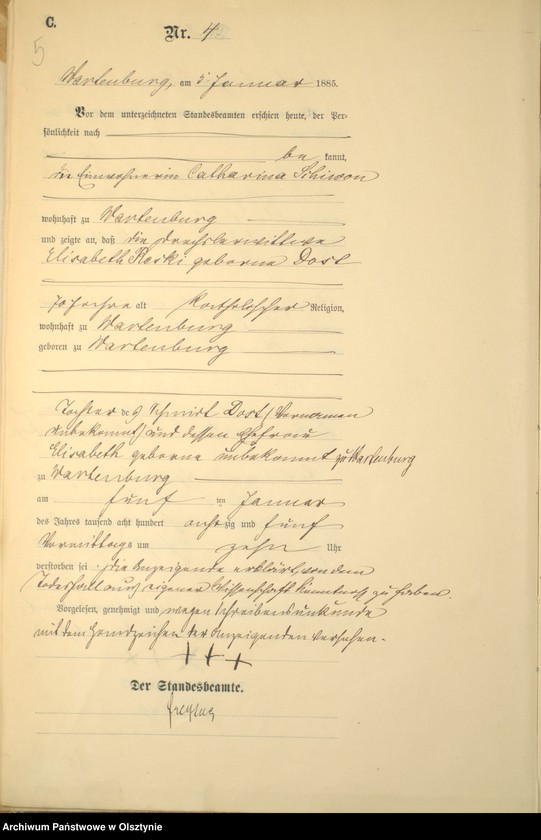 C.
5
Nr. 4
Wartenburg, am 5 Januar 1885.
Vor dem unterzeichneten Standesbeamten erschien heute, der Per-
sönlichkeit nach
be kannt,
die Einwohnerin Catharina Schiwon
wohnhaft zu Wartenburg
und zeigte an, daß die Drechslerwittwe
Elisabeth Raski geborne Dost
70 Jahre alt Katholischer Religion,
wohnhaft zu Wartenburg
geboren zu Wartenburg
Tochter des Schmidt Dost (Vornamen
unbekannt) und dessen Ehefrau
Elisabeth geborne unbekannt zu Wartenburg
zu Wartenburg
am fünf ten Januar
des Jahres tausend acht hundert achtzig und fünf
Vormittags um zehn Uhr
verstorben sei die Anzeigende erklärt, von dem
Todesfall aus eigener Wissenschaft Kenntniß zu haben.
Vorgelesen, genehmigt und wegen Schreibensunkunde
mit dem Handzeichen der Anzeigenden versehen.
+++
Der Standesbeamte.
Archiwum Państwowe w Olsztynie